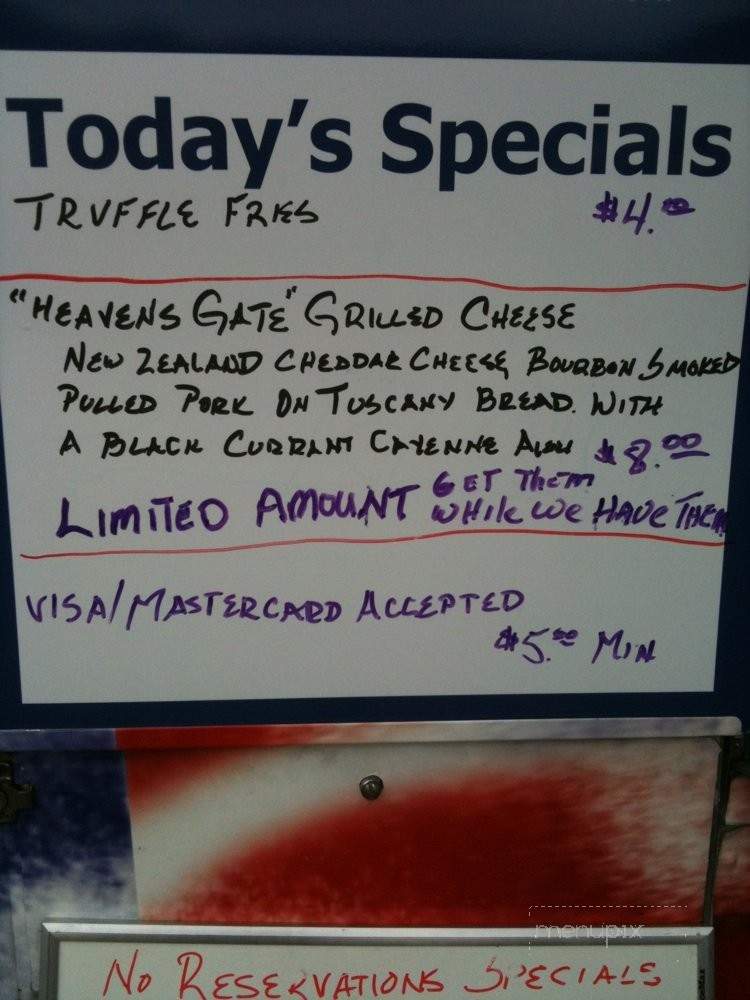 Today's Specials
TRUFFLE FRIES $4.00
"HEAVENS GATE" GRILLED CHEESE
NEW ZEALAND CHEDDAR CHEESE BOURBON SMOKED
PULLED PORK ON TUSCANY BREAD. WITH
A BLACK CURRANT CAYENNE $8.00
LIMITED AMOUNT GET THEM
WHILE WE HAVE THEM
VISA/MASTERCARD ACCEPTED
$5.00 MIN
menupix
NO RESERVATIONS SPECIALS